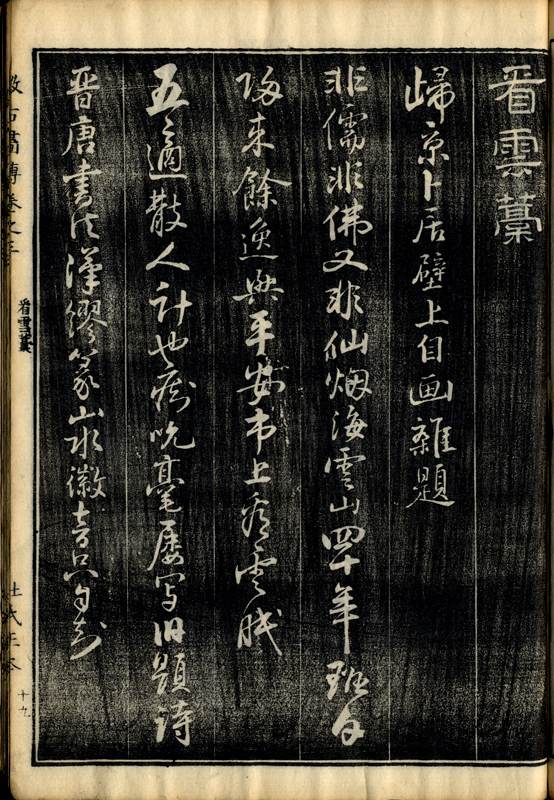 看雲藁
歸京卜居壁上自画雜題
非儒非佛又非仙烟海雲山四十年班白
歸来餘逸興平安市上看雲眠
五適散人計也痴吮毫屢写旧題詩
晋唐書法漢繆篆山水徽音只自知
看雲藁
十九